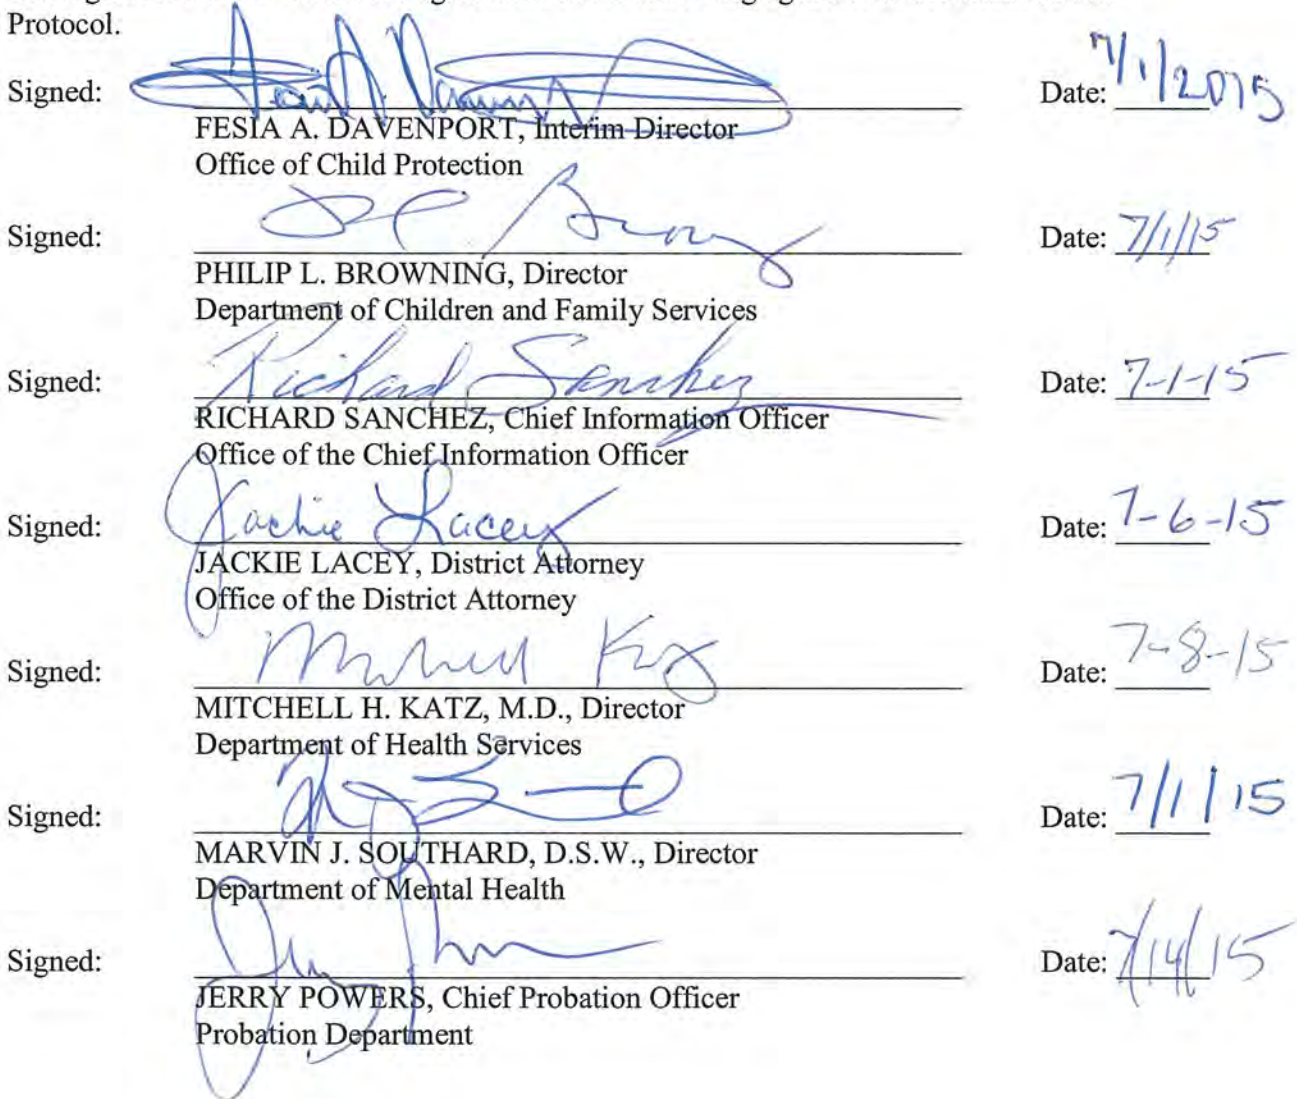 Protocol.
Signed: Date: 7/1/2015
FESIA A. DAVENPORT, Interim Director
Office of Child Protection
Signed: Date: 7/1/15
PHILIP L. BROWNING, Director
Department of Children and Family Services
Signed: Richard Sanchez Date: 7-1-15
RICHARD SANCHEZ, Chief Information Officer
Office of the Chief Information Officer
Signed: Jackie Lacey Date: 7-6-15
JACKIE LACEY, District Attorney
Office of the District Attorney
Signed: Date: 7-8-15
MITCHELL H. KATZ, M.D., Director
Department of Health Services
Signed: Date: 7/1/15
MARVIN J. SOUTHARD, D.S.W., Director
Department of Mental Health
Signed: Date: 7/14/15
JERRY POWERS, Chief Probation Officer
Probation Department